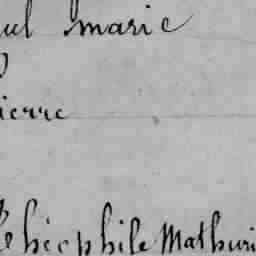 ul marie
ierre
Théophile Mathuri